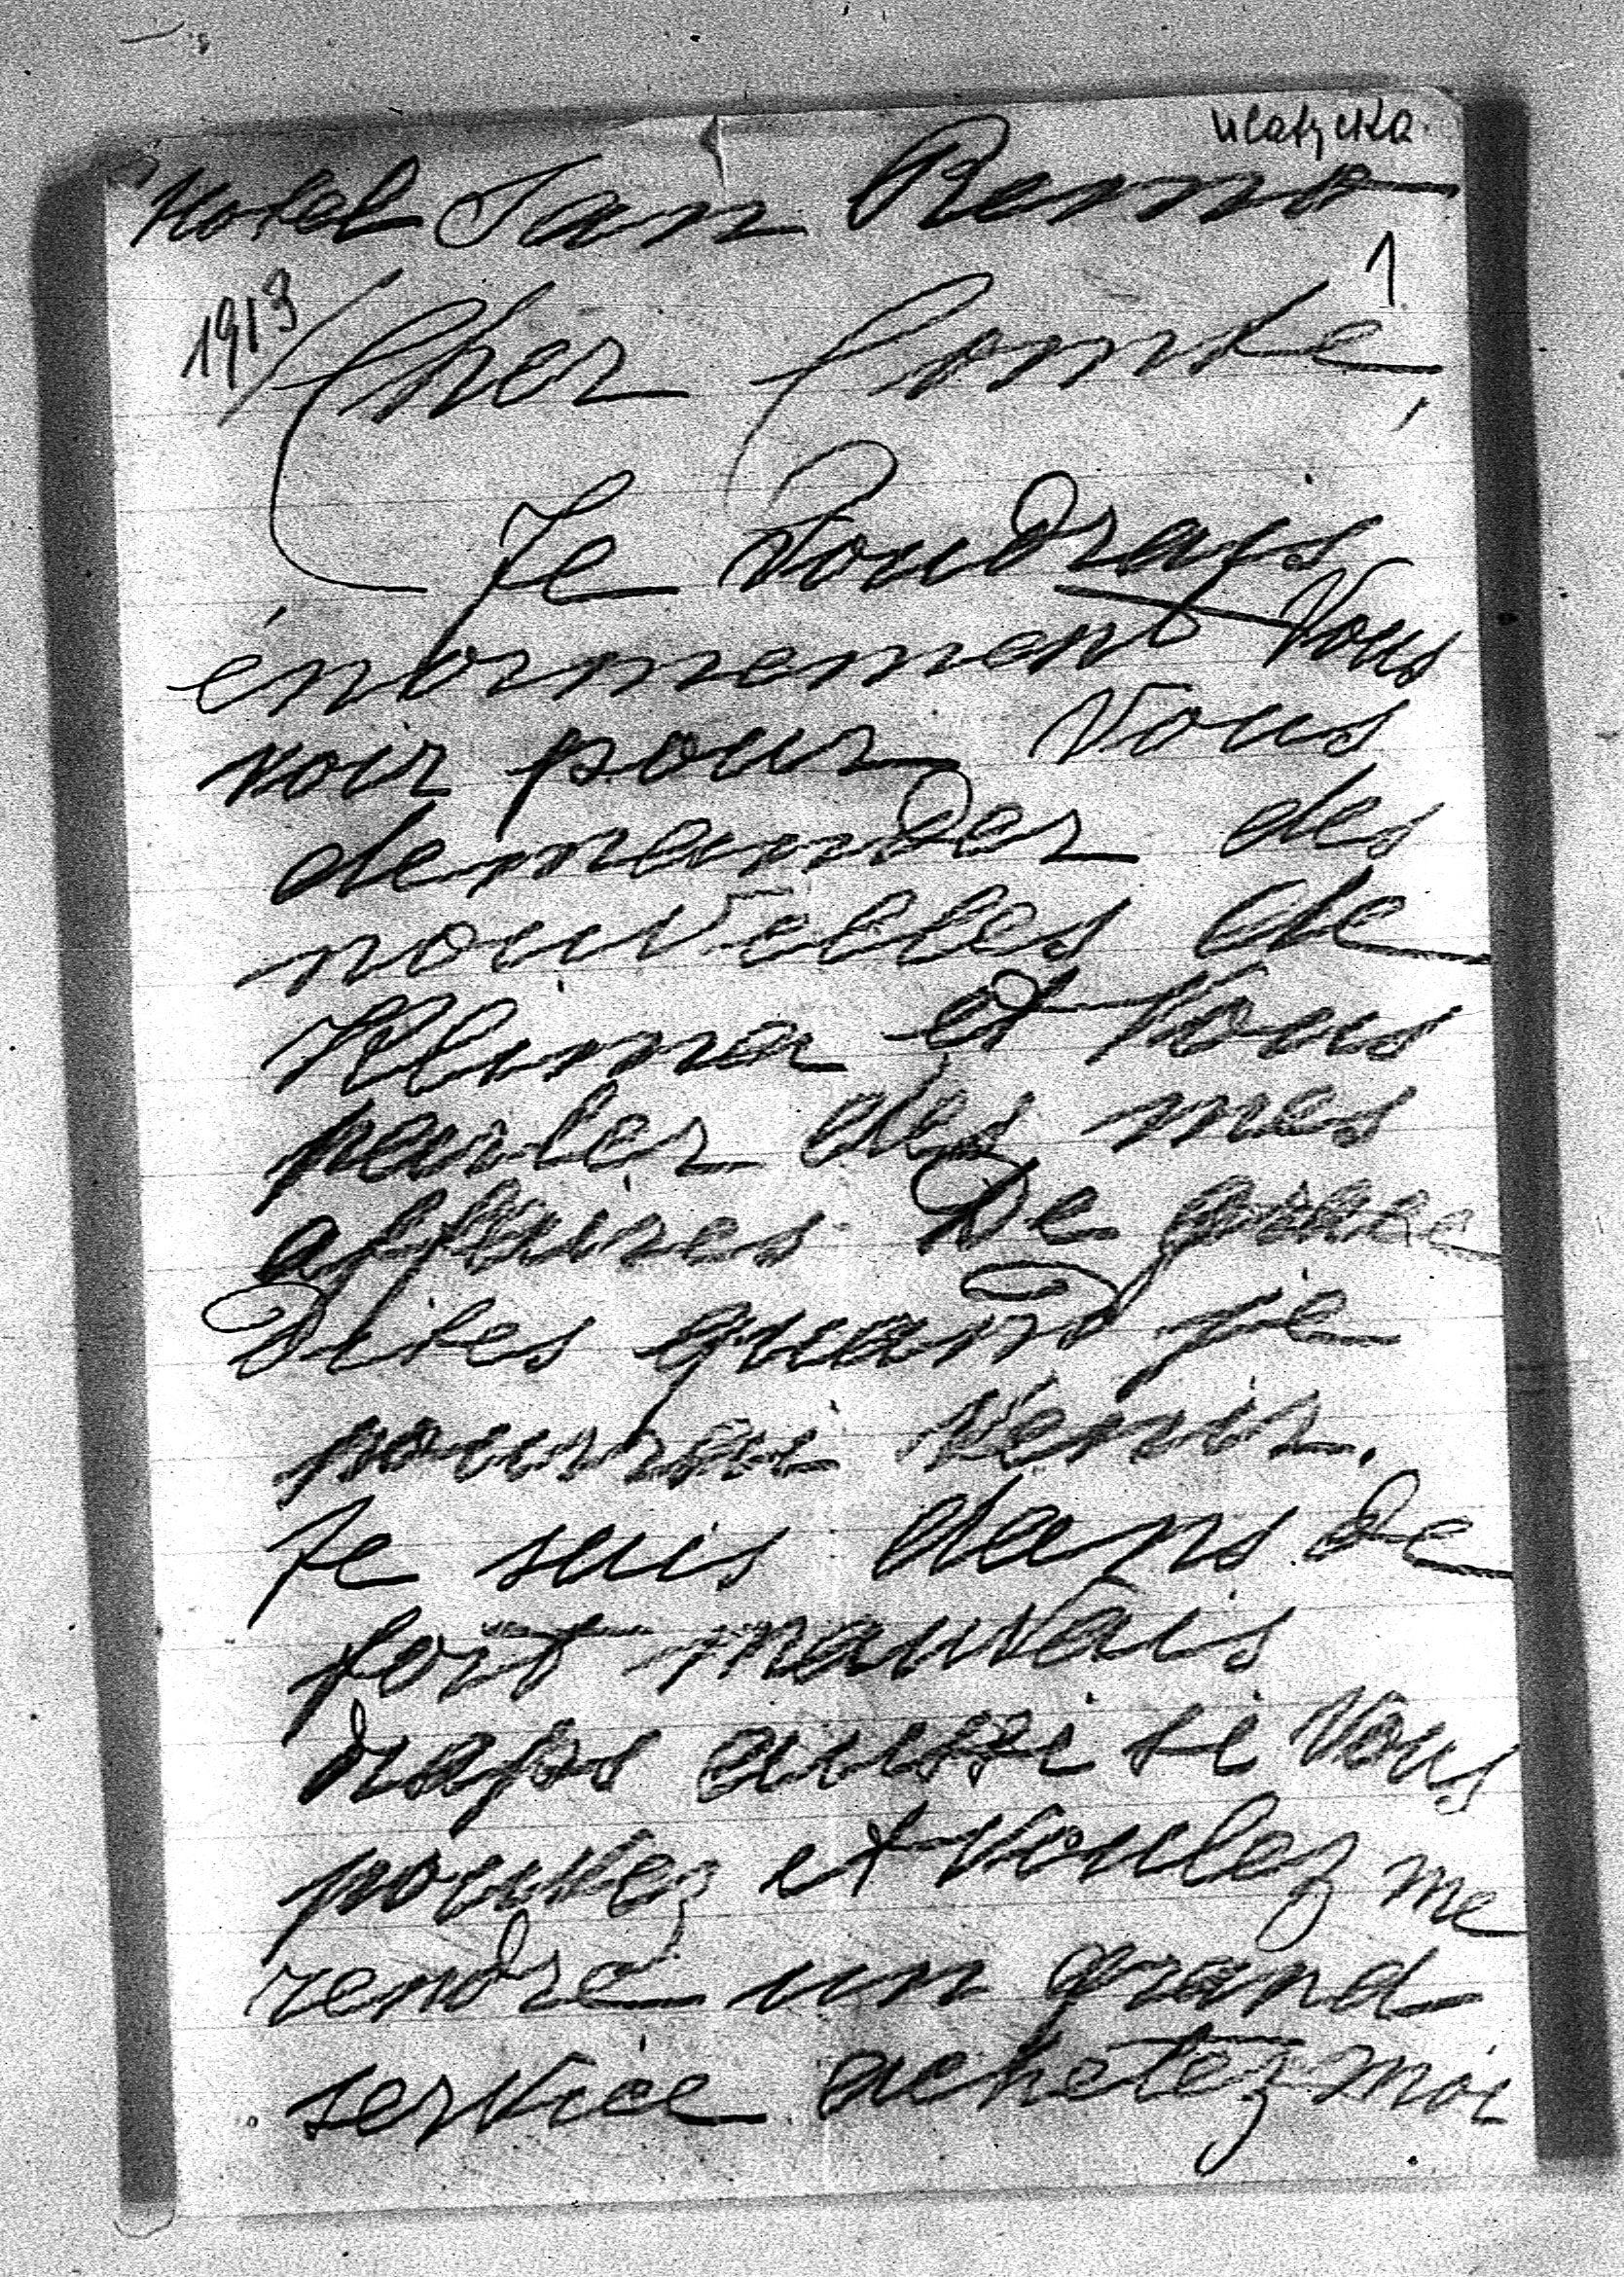 Hotel San Remo
1913
1
Cher Comte,
Je Voudrais
énormement Vous
voir pour Vous
demander des
nouvelles de
Klima et Vous
parler des mes
affaires De grace
Dites quand je
pourrai Venir.
Je suis dans de
fort mauvais
draps aussi si Vous
pouvez et Voulez me
rendre un grand
service achetez moi